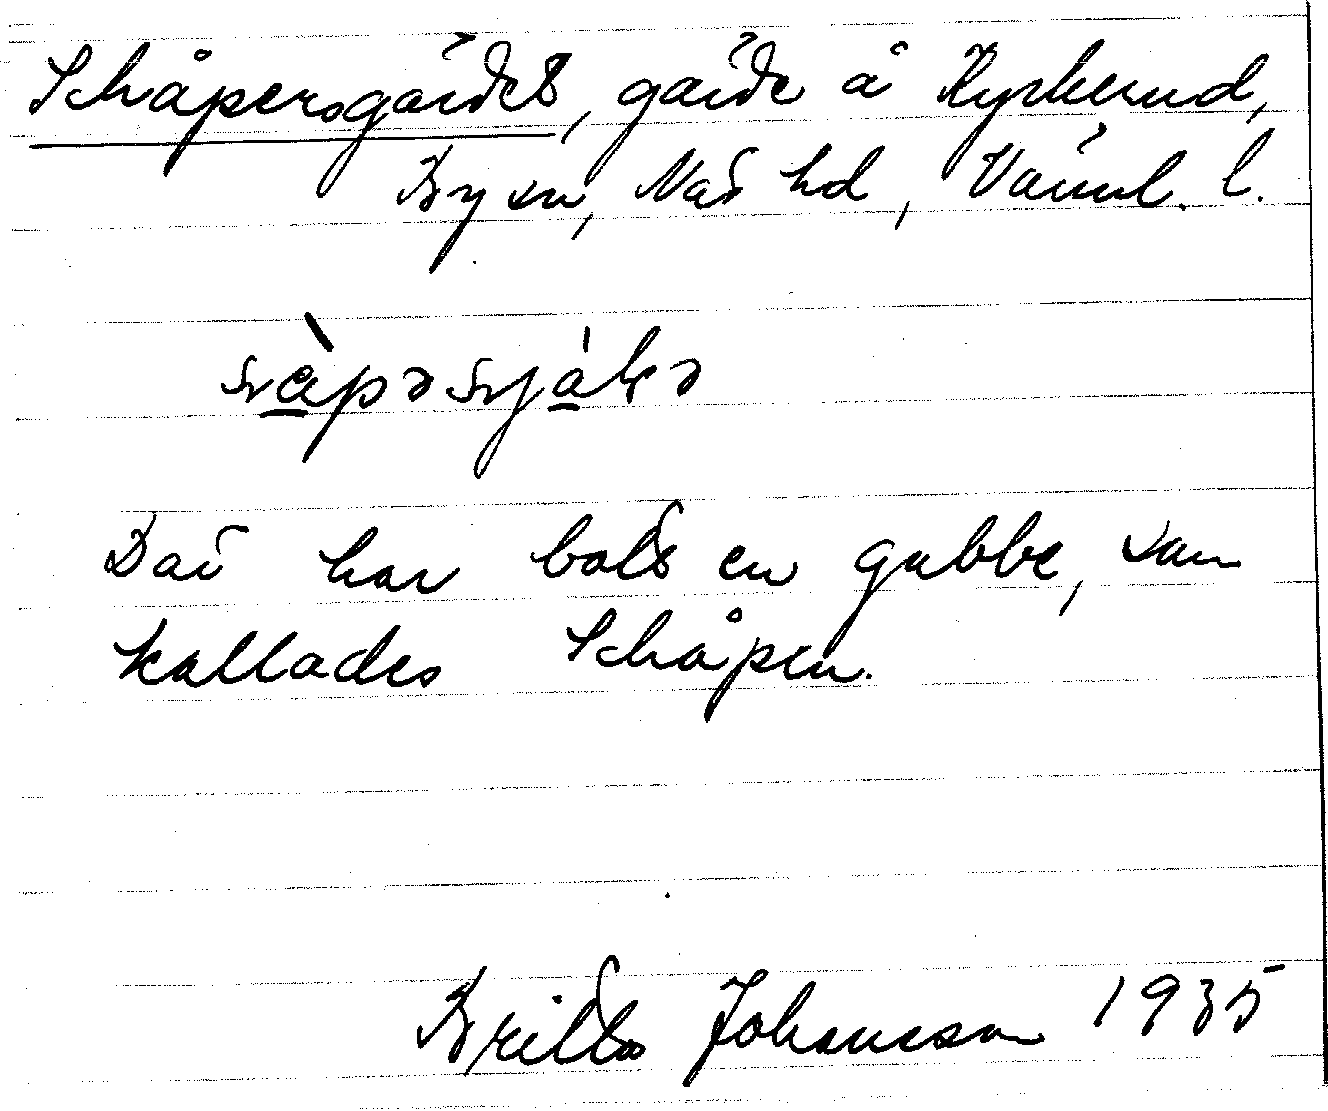 Schåpersgärdet, gärde å Kyrkerud,
By sn, Näs hd, Värml. l.
Där har bott en gubbe, som
kallades Schåpen.
Britta Johansson 1935